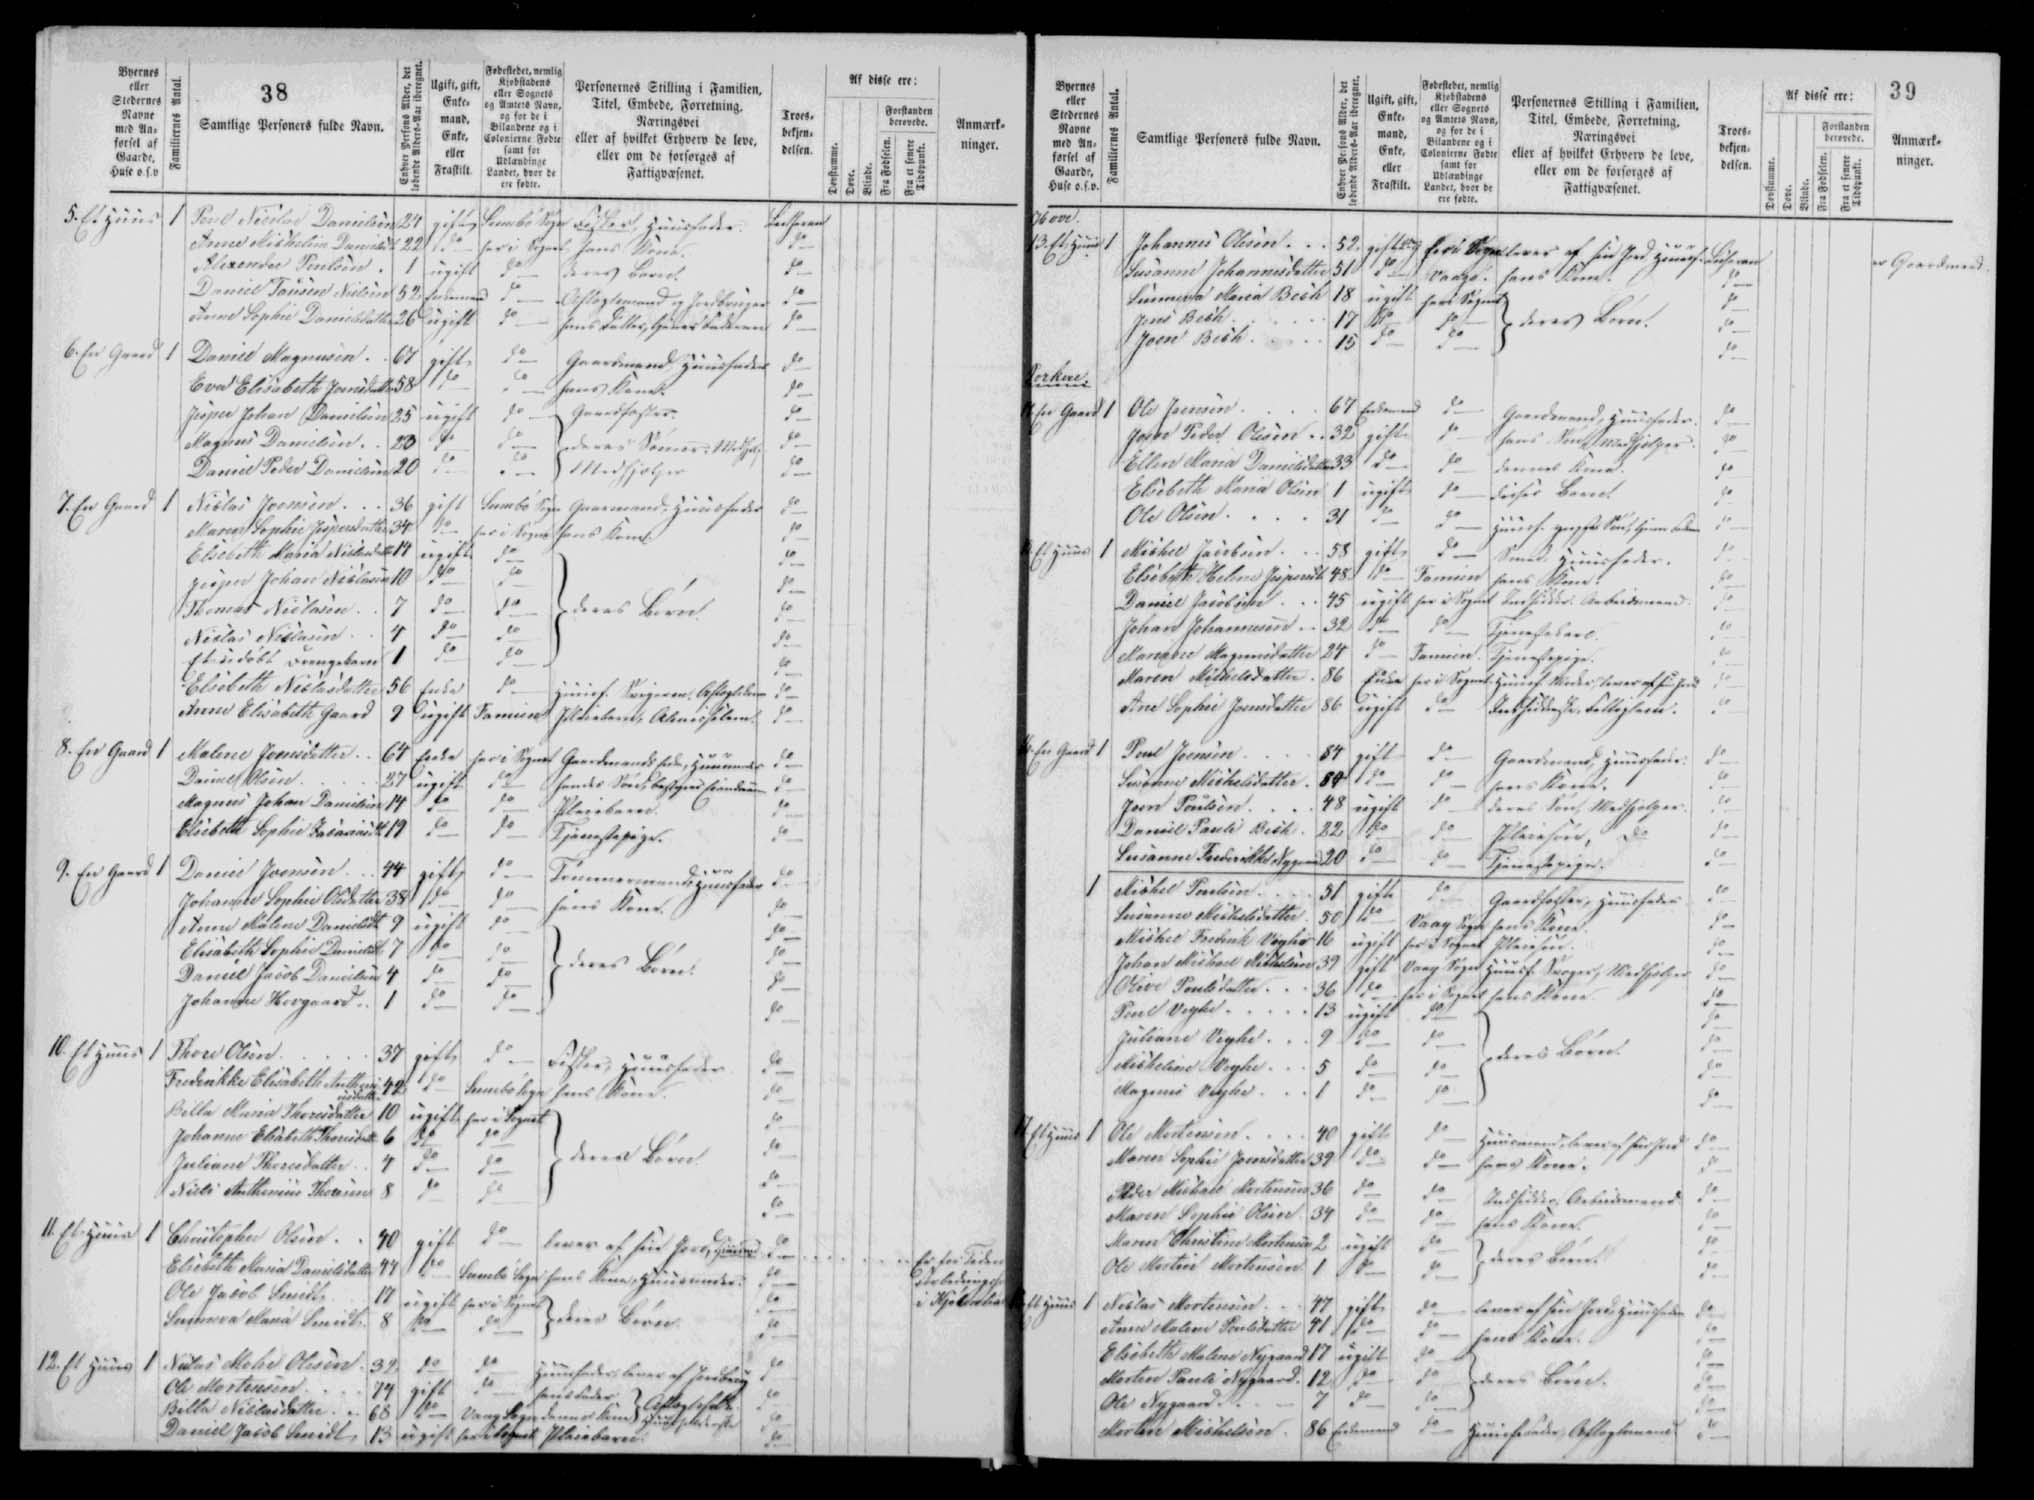 38
Byernes eller Stedernes Navne med Anførsel af Gaarde, Huse o.s.v
Familiernes Antal.
Samtlige Personers fulde Navn.
Enhver Persons Alder, det løbende Alders-Aar iberegnet.
Ugift, gift, Enkemand, Enke, eller Fraskilt.
Fødestedet, nemlig Kjøbstadens eller Sognets og Amtets Navn, og for de i Bilandene og i Colonierne Fødte samt for Udlændinge Landet, hvor de ere fødte.
Personernes Stilling i Familien, Titel, Embede, Forretning, Næringsvei eller af hvilket Erhverv de leve, eller om de forsørges af Fattigvæsenet.
Troesbekjendelsen.
Af disse ere:
Døvstumme.
Døve.
Blinde.
Forstanden berøvede.
Fra Fødselen.
Fra et senere Tidspunkt.
Anmærkninger.
5. Et Huus 1 Poul Nicolai Danielsen 24 gift Sumbø Sogn Fisker, Huusfader. Lutheran
Anne Micheline Danielsdt 22 do her i Sognet hans Kone. do
Alexander Poulsen. 1 ugift do deres Barn. do
Daniel Tausen Nielsen 52 Enkemand do Aftægtsmand og Jordbruger do
Anne Sophie Danielsdatter 26 ugift do hans Datter, tjener Faderen do
6. En Gaard 1 Daniel Magnusen . . 67 gift do Gaardmand, Huusfader do
Eva Elisabeth Joensdatter 58 do do hans Kone. do
Jesper Johan Danielsen 25 ugift do Gaardfæster. do
Magnus Danielsen . . 23 do do deres Sønner. Medhj. do
Daniel Peder Danielsen 20 do do Medhjelper do
7. En Gaard 1 Niclas Joensen . . . 36 gift Sumbø Sogn Gaarmand, Huusfader do
Maren Sophie Jespersdatter 34 do her i Sognet hans Kone. do
Elsebeth Maria Niclasdatter 14 ugift do do
Jesper Johan Niclasen 10 do do do
Thomas Niclasen . . 7 do do deres Børn. do
Niclas Niclasen . . 4 do do do
Et udøbt Drengebarn 1 do do do
Elsebeth Niclasdatter 56 Enke do Huusf. Svigerm. Aftægtskone do
Anne Elisabeth Gaard 9 ugift Famien Pleiebarn, Almisselem. do
8. En Gaard 1 Malene Joensdatter . . 64 Enke her i Sognet Gaardmandsenke, Huusmoder do
Daniel Olsen . . . 27 ugift do hendes Søn, bestyrer Eiendommen do
Magnus Johan Danielsen 14 do do Pleiebarn. do
Elsebeth Sophie Zachariasdt 19 do do Tjenestepige. do
9. En Gaard 1 Daniel Joensen . . 44 gift do Tømmermand, Huusfader do
Johanne Sophie Olsdatter 38 do do hans Kone. do
Anne Malene Danielsdt 9 ugift do do
Elisabeth Sophie Danielsdt 7 do do deres Børn. do
Daniel Jacob Danielsen 4 do do do
Johanne Hovgaard . . 1 do do do
10. Et Huus 1 Thore Olsen . . . . 37 gift do Fisker, Huusfader do
Frederikke Elisabeth Anthoniusdatter 42 do Sumbø Sogn hans Kone. do
Billa Maria Thoresdatter 10 ugift her i Sognet do
Johanne Elisabeth Thoresdatt 6 do do do
Juliane Thoresdatter . . 4 do do deres Børn. do
Niels Anthonius Thoresen 8 do do do
11. Et Huus 1 Christopher Olsen . . 40 gift do lever af sin Jord, Huusf. do Er for Tiden i Forbedringshs i Kjøbenhavn
Elsebeth Maria Danielsdatter 44 do Sumbø Sogn hans Kone, Huusmoder. do
Ole Jacob Smidt . . 17 ugift her i Sognet do
Sunneva Maria Smidt. 8 do do deres Børn. do
12. Et Huus 1 Niclas Mohr Olesen . 32 do do Huusfader, lever af Jordbrug do
Ole Mortensen . . . 74 gift do hans Fader do
Billa Niclasdatter . . 68 do Vaag Sogn dennes Kone Aftægtsfolk do
Daniel Jacob Smidt 13 ugift her i Sognet Pleiebarn. do
39
Byernes eller Stedernes Navne med Anførsel af Gaarde, Huse o.s.v.
Familiernes Antal.
Samtlige Personers fulde Navn.
Enhver Persons Alder, det løbende Alders-Aar iberegnet.
Ugift, gift, Enkemand, Enke, eller Fraskilt.
Fødestedet, nemlig Kjøbstadens eller Sognets og Amtets Navn, og for de i Bilandene og i Colonierne Fødte samt for Udlændinge Landet, hvor de ere fødte.
Personernes Stilling i Familien, Titel, Embede, Forretning, Næringsvei eller af hvilket Erhverv de leve, eller om de forsørges af Fattigvæsenet.
Troesbekjendelsen.
Af disse ere:
Døvstumme.
Døve.
Blinde.
Forstanden berøvede.
Fra Fødselen.
Fra et senere Tidspunkt.
Anmærkninger.
Hove.
13. Et Huus 1 Johannes Olesen . . . 52 gift her i Sognet lever af sin Jord Huusf. Lutheran er Gaardmand.
Susanne Johannesdatter 51 do Vaagø. hans Kone. do
Sunneva Maria Bech 18 ugift her i Sognet do
Jens Bech . . . . 17 do do deres Børn. do
Joen Bech . . . . 15 do do do
Porkere.
14. En Gaard 1 Ole Joensen . . . . 67 Enkemand do Gaardmand, Huusfader. do
Joen Peder Olesen . . 32 gift do hans Søn, Medhjelper. do
Ellen Maria Danielsdatter 33 do do dennes Kone. do
Elsebeth Maria Olsen 1 ugift do disses Barn. do
Ole Olsen . . . . 31 do do Huusf. Søn, tjener Faderen do
15. Et Huus 1 Michel Jacobsen . . 58 gift do Smed. Huusfader. do
Elsebeth Helene Jespersdt 48 do Famien hans Kone. do
Daniel Jacobsen . . 45 ugift her i Sognet Indsidder. Arbeidsmand. do
Johan Johannesen . . 32 do do Tjenestekarl. do
Mariane Magnusdatter 24 do Famien. Tjenestepige. do
Maren Michelsdatter . 86 Enke her i Sognet Huusf. Moder, lever af sin Jord do
Ane Sophie Joensdatter 86 ugift do Indsidderske. Fattiglem. do
16. En Gaard 1 Poul Joensen . . . 84 gift do Gaardmand, Huusfader. do
Susanne Michelsdatter . 84 do do hans Kone. do
Joen Poulsen . . . 48 ugift do deres Søn, Medhjelper. do
Daniel Pauli Bech . 22 do do Pleiesøn, do do
Susanne Frederikke Nygaard 20 do do Tjenestepige. do
1 Michel Poulsen . . . 51 gift do Gaardfæster, Huusfader do
Susanne Michelsdatter 50 do Vaag Sogn hans Kone. do
Michel Frederik Veyhe 16 ugift her i Sognet Pleiesøn. do
Johan Michael Michelsen 39 gift Vaag Sogn Huusf. Svoger, Medhjelper do
Olive Poulsdatter . . . 36 do her i Sognet hans Kone. do
Poul Veyhe . . . . . 13 ugift do do
Juliane Veyhe . . . 9 do do do
Micheline Veyhe . . . 5 do do deres Børn. do
Magnus Veyhe . . . 1 do do do
17. Et Huus 1 Ole Mortensen . . . . 40 gift do Huusmand, lever af sin Jord do
Maren Sophie Joensdatter 39 do do hans Kone. do
Peder Michael Mortensen 36 do do Indsidder, Arbeidsmand do
Maren Sophie Olsen 34 do do hans Kone. do
Maren Christine Mortensen 2 ugift do do
Ole Martin Mortensen 1 do do deres Børn. do
18. Et Huus 1 Niclas Mortensen . . . 47 gift do lever af sin Jord, Huusfader do
Anne Malene Poulsdatter 41 do do hans Kone. do
Elsebeth Malene Nygaard 17 ugift do do
Morten Pauli Nygaard . 12 do do deres Børn. do
Ole Nygaard . . . . 7 do do do
Morten Michelsen . 86 Enkemand do Huusf. Fader, Aftægtsmand do